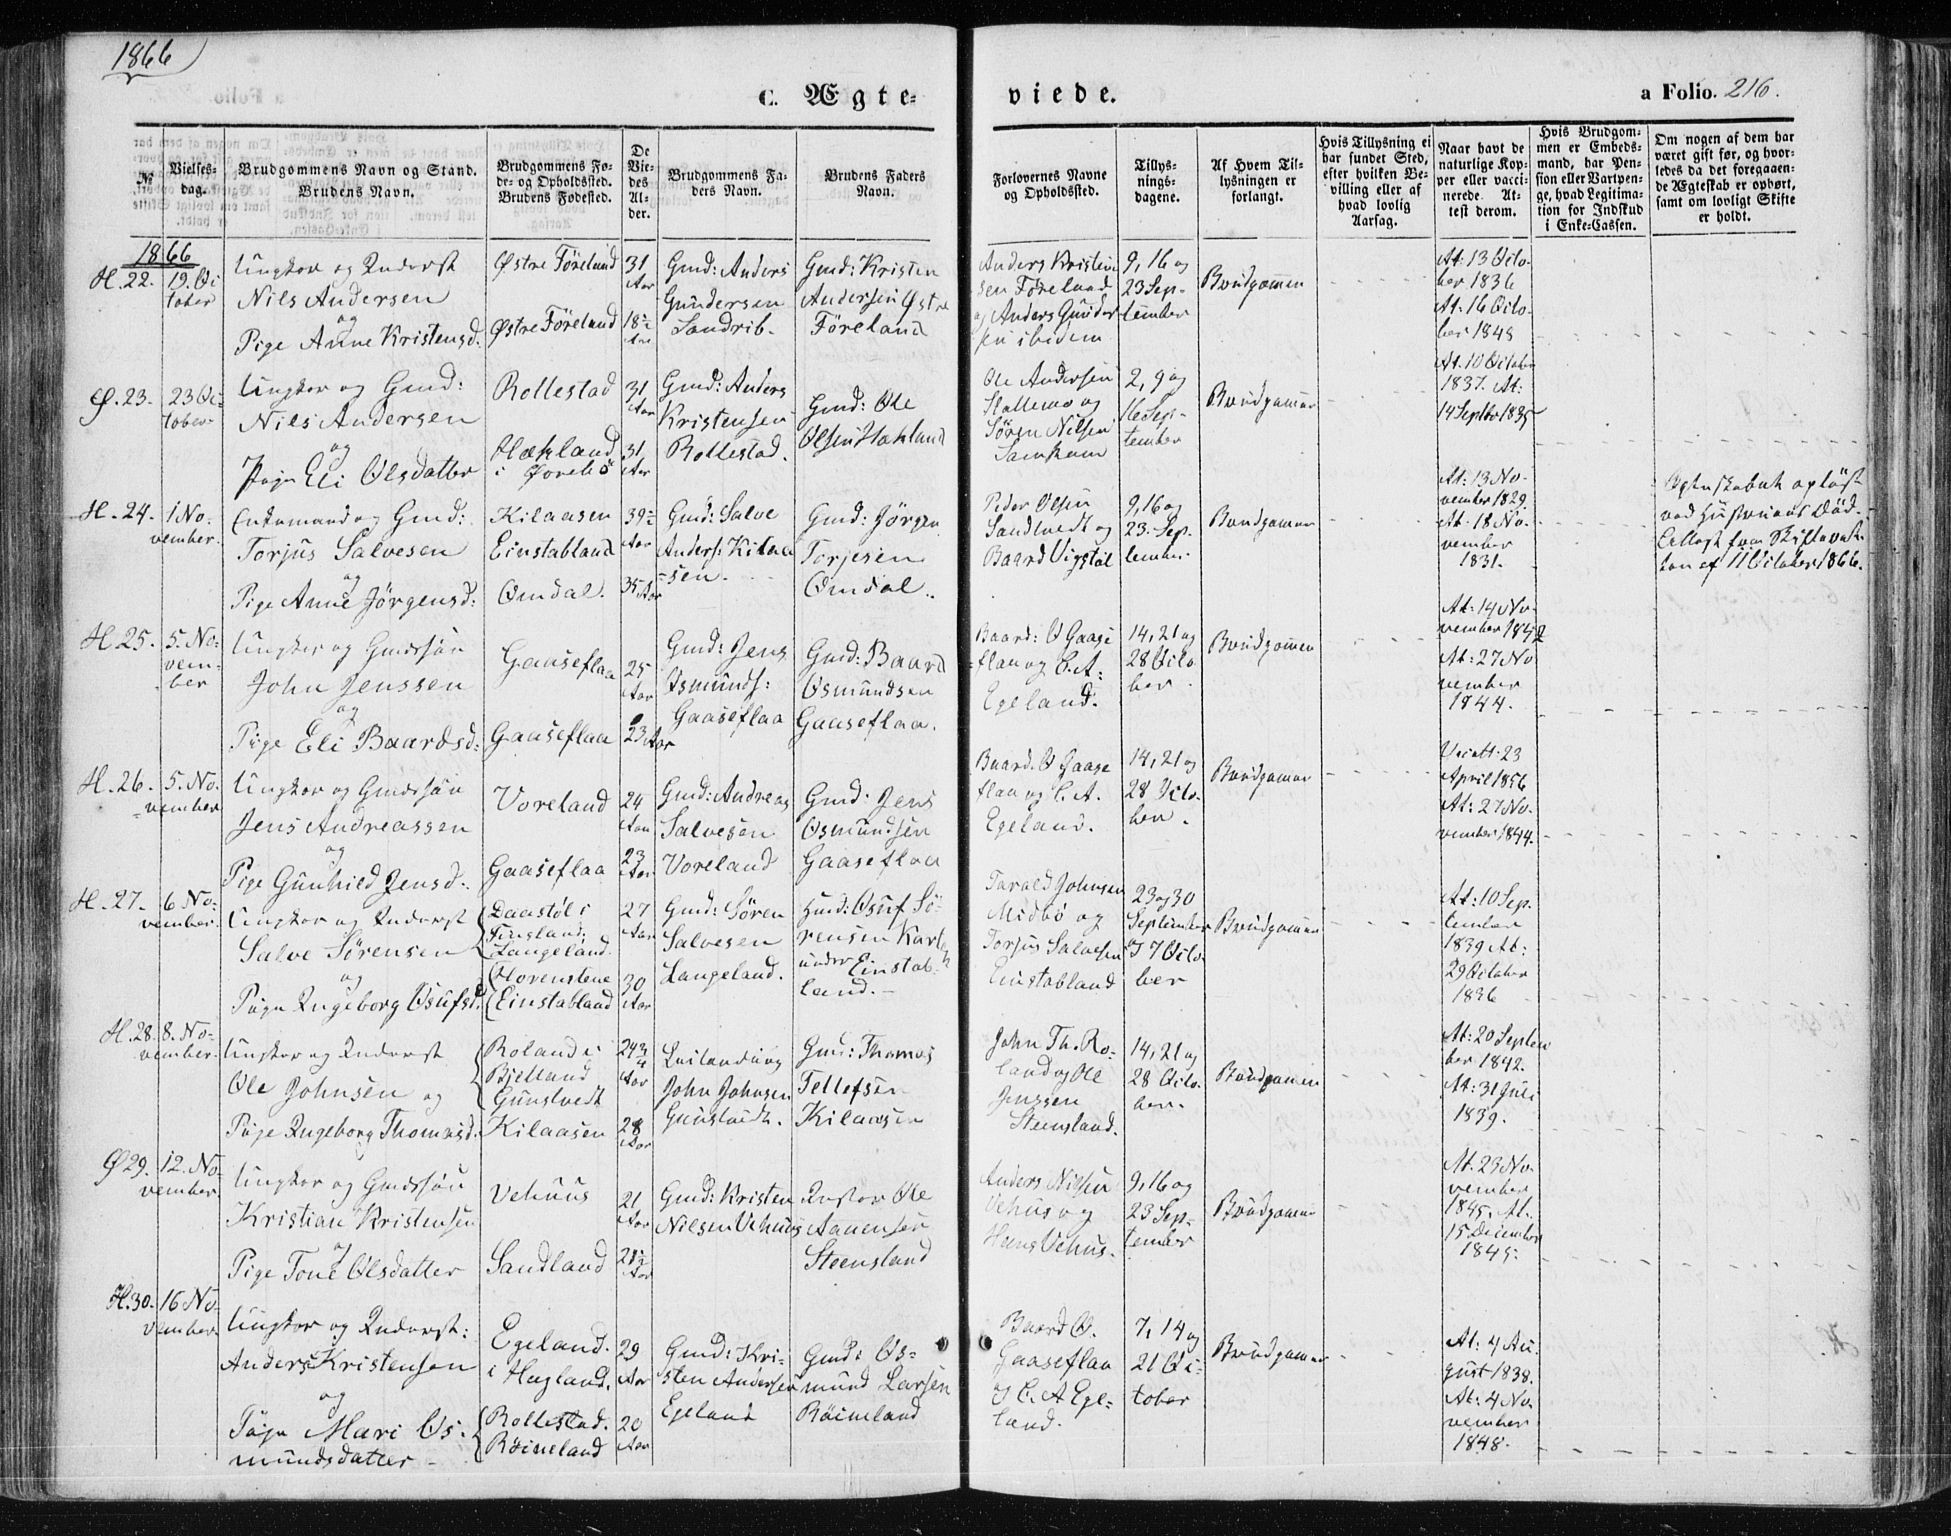 1866
C. Ægte-
viede.
a Folio. 216.
№
Vielses-
dag.
Brudgommens Navn og Stand.
Brudens Navn.
Brudgommens Fø-
de- og Opholdssted.
Brudens Fødested.
De
Vie-
des
Al-
der.
Brudgommens Fa-
ders Navn.
Brudens Faders
Navn.
Forlovernes Navne
og Opholdssted.
Tillys-
nings-
dagene.
Af Hvem Til-
lysningen er
forlangt.
Hvis Tillysning ei
har fundet Sted,
efter hvilken Be-
villing eller af
hvad lovlig
Aarsag.
Naar havt de
naturlige Kop-
per eller vacci-
nerede. At-
test derom.
Hvis Brudgom-
men er Embeds-
mand, har Pen-
sion eller Vartpen-
ge, hvad Legitima-
tion for Indskud
i Enke-Cassen.
Om nogen af dem har
været gift før, og hvor-
ledes da det foregaaen-
de Ægteskab er ophørt,
samt om lovligt Skifte
er holdt.
1866
H. 22.
19. Oc
tober
Ungkar og Inderst
Nils Andersen
og
Pige Anne Kristensd.
Østre Föreland
Østre Föreland
31
Aar
18½
Aar
Gmd: Anders
Gundersen
Sandrib.
Gmd: Kristen
Andersen Østre
Föreland
Anders Kristen
sen Föreland
og Anders Gunder
sen ibidem
9, 16 og
23 Sep-
tember
Brudgommen
At: 13 Octo-
ber 1836
At: 16 Octo-
ber 1848
Ø. 23.
23 Oc-
tober
Ungkar og Gmd:
Nils Andersen
og
Pige Eli Olsdatter
Rollestad
Hækland
i Øvrebö
31
Aar
31
Aar
Gmd: Anders
Kristensen
Rollestad.
Gmd: Ole
Olsen Hækland
Ole Andersen
Stallemo og
Sören Nilsen
2, 9 og
16 Sep-
tember
Brudgommen
At. 10 October
1837. At:
14 Septbr 1835
H. 24.
1 No-
vember.
Enkemand og Gmd:
Torjus Salvesen
og
Pige Anne Jörgensd:
Kilaasen
Einstabland
Omdal.
39½
Aar
35 Aar
Gmd: Salve
Anders: Kilaa
sen.
Gmd: Jörgen
Torjesen
Omdal.
Peder Olsen
Sandvedt og
Baard Vigstöl
9, 16 og
23. Sep-
tember.
Brudgommen
At: 13 No-
vember 1829
At. 18 No-
vember
1831.
Ægteskabet oplöst
ved Hustruens Död.
Attest fra Skifteret-
ten af 11 October 1866.
H. 25.
5. No-
vem-
ber
Ungkar og Gmdssön
John Jenssen
og
Pige Eli Baardsd:
Gaaseflaa
Gaaseflaa
25
Aar
23 Aar
Gmd: Jens
Osmunds:
Gaaseflaa
Gmd: Baard
Osmundsen
Gaaseflaa.
Baard: O Gaase
flaa og C. A.
Egeland.
14, 21 og
28 Octo
ber
Brudgommen
At: 14 No-
vember 1842
At: 27 No
vember
1844.
H. 26.
5. No-
vember
Ungkar og Gmdssön
Jens Andreassen
og
Pige Gunhild Jensd.
Voreland
Gaaseflaa
24
Aar
23
Aar
Gmd: Andreas
Salvesen
Voreland
Gmd: Jens
Osmundsen
Gaaseflaa
Baard. O Gaase
flaa og C. A.
Egeland.
14, 21 og
28 Octo-
ber.
Brudgommen
Vacatt: 23
April 1856
At: 27 No-
vember 1844.
H. 27.
6 No-
vember.
Ungkar og Inderst
Salve Sörensen
og
Pige Ingeborg Osufsd.
Daastöl i
Finsland:
Langeland
Horenstene
Einstabland
27
Aar
30
Aar
Gmd: Sören
Salvesen
Langeland.
Hmd: Osuf Sö-
rensen
under Einstab-
land.
Tarald Johnsen
Midbö og
Torjus Salvesen
Einstabland
23 og 30
September
& 7 Octo-
ber
Brudgommen
At: 10 Sep-
tember
1839 At:
29 October
1836
H. 28.
8. No-
vember.
Ungkar og Inderst
Ole Johnsen og
Pige Ingeborg Thomasd.
Roland i
Bjelland
Gunstvedt
Kilaasen
24¾
Aar
28
Aar
Leilending
John Johnsen
Gunstvedt.
Gmd: Thomas
Tellefsen
Kilaasen
John Th. Ro-
land og Ole
Jenssen
Steensland.
14, 21 og
28 Octo-
ber.
Brudgommen
At: 20 Septem
ber 1842.
At: 31 Juli
1839.
Ø 29.
12. No-
vember.
Ungkar og Gmdssön
Kristian Kristensen
og
Pige Tone Olsdatter
Vehuus
Sandland
21
Aar
21½
Aar
Gmd: Kristen
Nilsen Vehuus
Inster Ole
Aanensen
Steensland
Anders Nilsen
Vehus og
Hans Vehus.
9, 16 og
23 Sep-
tember
Brudgommen
At. 23 No-
vember
1845. At.
15 December
1845.
H. 30.
16 No-
vember.
Ungkar og Inderst:
Anders Kristensen
og
Pige Mari Os-
mundsdatter
Egeland.
i Hægland.
Rollestad.
Röineland
29
Aar
20
Aar
Gmd: Kri-
sten Andersen
Egeland
Gmd: Os-
mund Larsen
Röineland
Baard O.
Gaaseflaa
& C. A Ege-
land.
7, 14 og
21 Oc-
tober
Brudgommen
At: 4 Au-
gust 1838.
At: 4 No-
vember
1848.